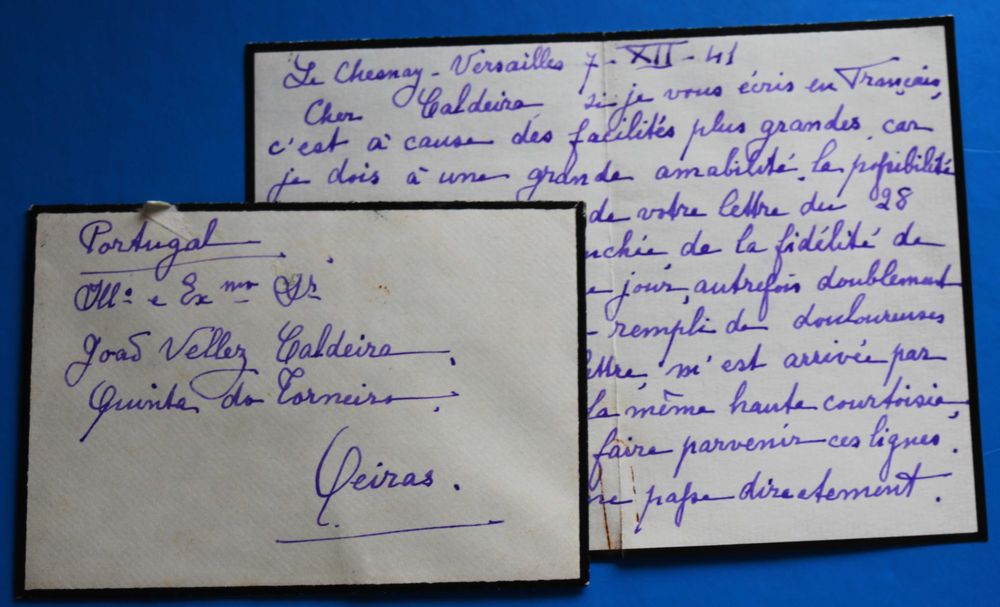 Le Chesnay - Versailles 7 - XII - 41
Cher Caldeira si je vous écris en Français,
c'est à cause des facilités plus grandes, car
je dois à une grande amabilité, la possibilité
de votre lettre du 28
nchée de la fidélité de
e jour, autrefois doublement
rempli de douloureuses
ettre, m'est arrivée par
la même haute courtoisie,
faire parvenir ces lignes.
ne passe directement.
Portugal
Illº e Exmo Sr
João Vellez Caldeira,
Quinta do Torneiro,
Oeiras.